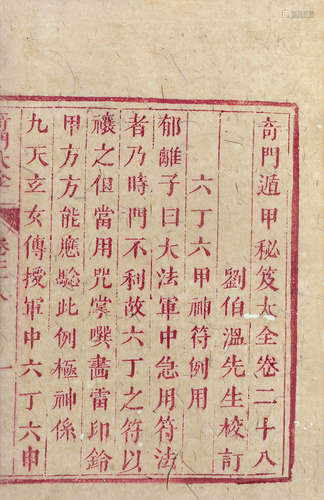 奇門遁甲秘笈大全卷二十八
劉伯溫先生校訂
六丁六甲神符例用
郁離子曰大法軍中急用符法
者乃時門不利故六丁之符以
禳之但當用咒噀畫雷印鈴
甲方方能應驗此例極神係
九天玄女傳授軍中六丁六甲